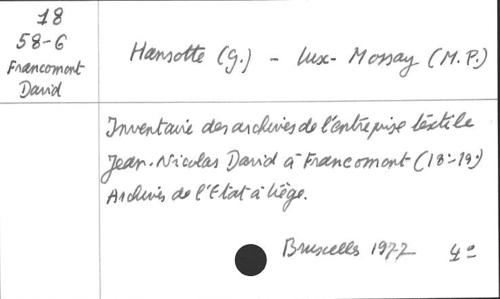 18
58-6
Francomont
David
Hansotte (G.) - Lux-Mossay (M.P.)
Inventaire des archives de l'entreprise textile
Jean-Nicolas David à Francomont (18e-19e)
Archives de l'Etat à Liège.
Bruxelles 1977 4°